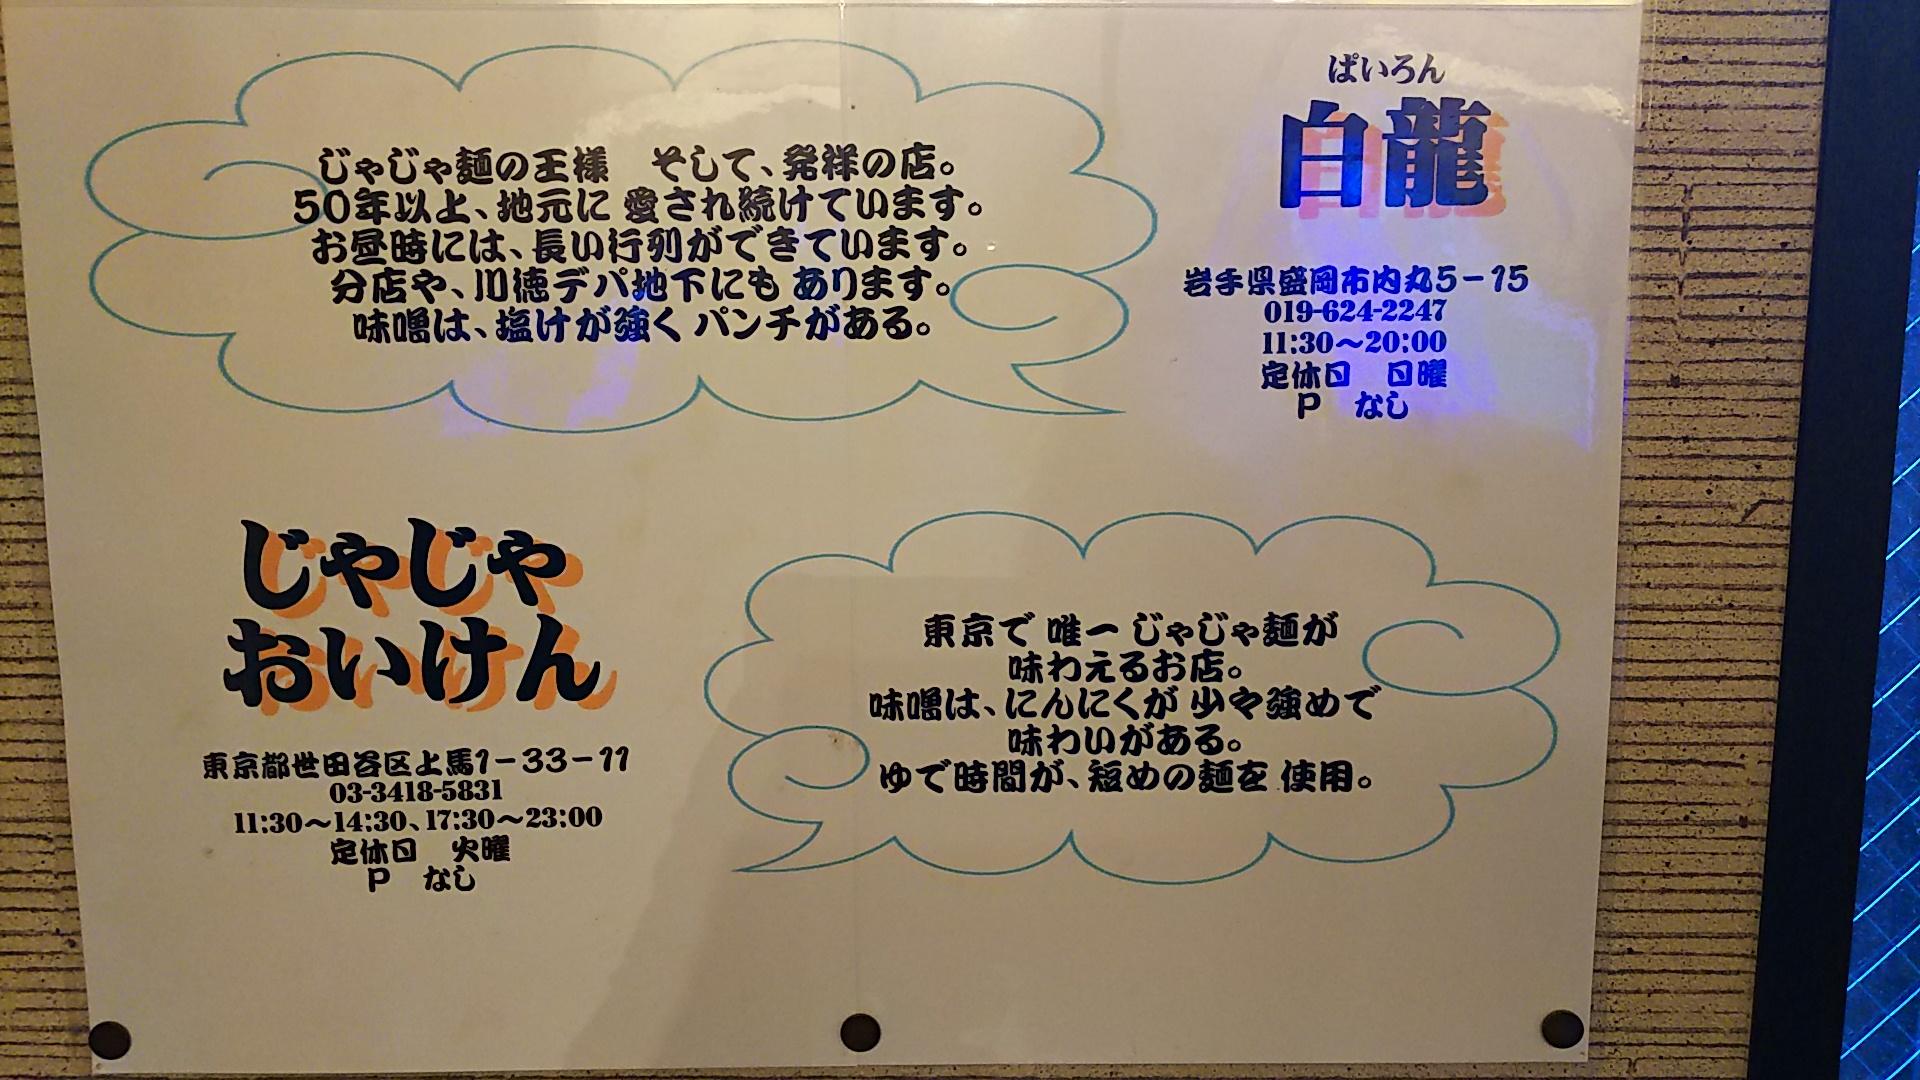 じゃじゃ麺の王様　そして、発祥の店。
50年以上、地元に 愛され続けています。
お昼時には、長い行列ができています。
分店や、川徳デパ地下にも あります。
味噌は、塩けが強く パンチがある。
ぱいろん
白龍
岩手県盛岡市内丸5－15
019-624-2247
11:30～20:00
定休日　日曜
P　なし
じゃじゃ
おいけん
東京都世田谷区上馬1－33－11
03-3418-5831
11:30～14:30、17:30～23:00
定休日　火曜
P　なし
東京で 唯一 じゃじゃ麺が
味わえるお店。
味噌は、にんにくが 少々強めで
味わいがある。
ゆで時間が、短めの麺を 使用。